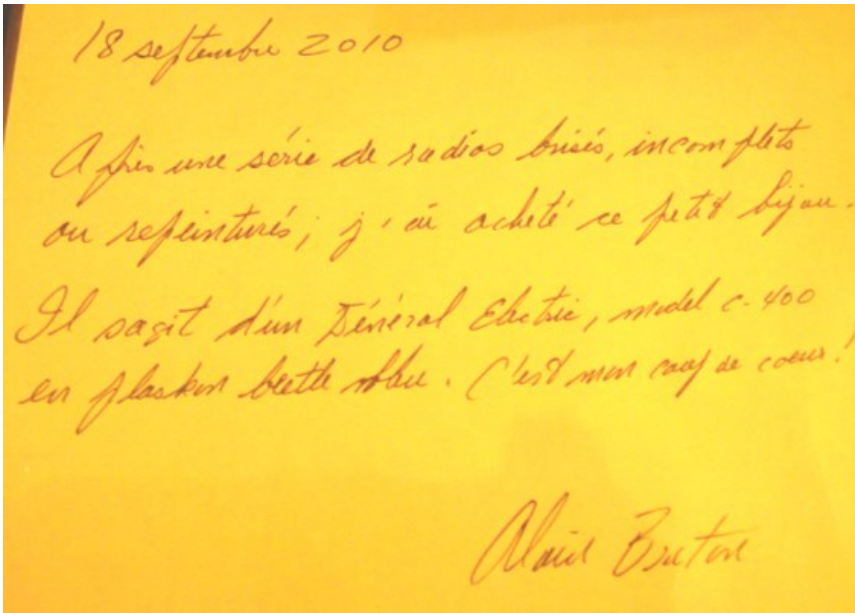 18 septembre 2010
Après une série de radios brisés, incomplets
ou repeinturés; j'ai acheté ce petit bijou.
Il sagit d'un Général Electric, model c-400
en plaskon beetle. C'est mon coup de coeur!
Alain Breton